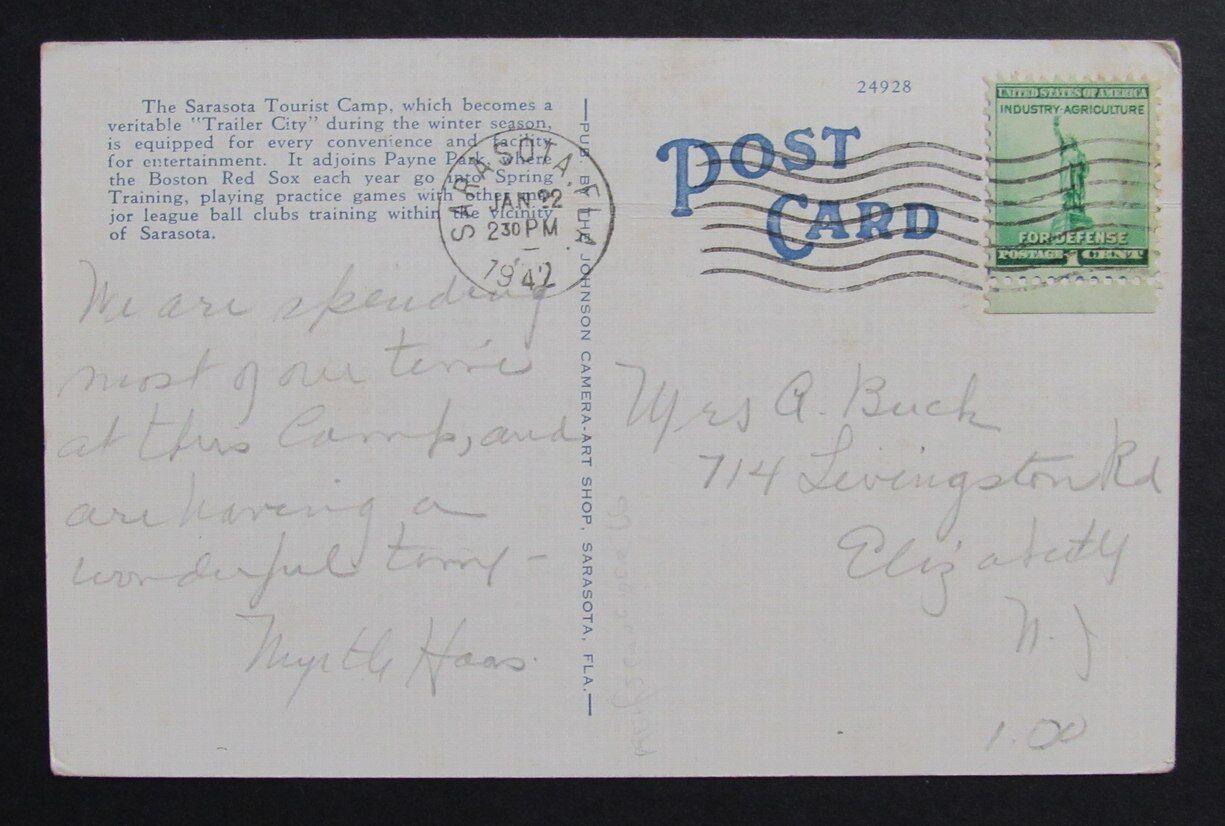 The Sarasota Tourist Camp, which becomes a
veritable "Trailer City" during the winter season,
is equipped for every convenience and facility
for entertainment. It adjoins Payne Park, where
the Boston Red Sox each year go into Spring
Training, playing practice games with other ma-
jor league ball clubs training within the vicinity
of Sarasota.
We are spending
most of our time
at this Camp, and
are having a
wonderful time –
Myrtle Haas.
PUB. BY THE JOHNSON CAMERA-ART SHOP, SARASOTA, FLA.
SARASOTA, FLA.
JAN 22
2 30 PM
1942
24928
POST
CARD
UNITED STATES OF AMERICA
INDUSTRY-AGRICULTURE
FOR DEFENSE
POSTAGE 1 CENT
Mrs A. Buck
714 Livingston Rd
Elizabeth
N. J
1.00